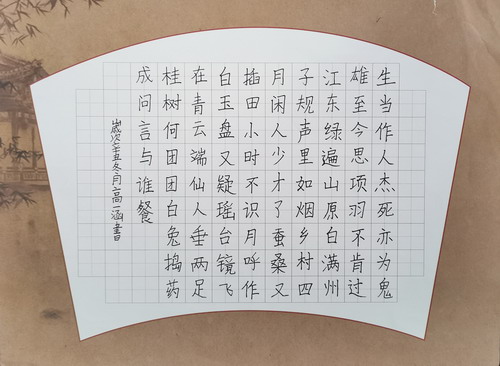 生当作人杰死亦为鬼
雄至今思项羽不肯过
江东绿遍山原白满州
子规声里如烟乡村四
月闲人少才了蚕桑又
插田小时不识月呼作
白玉盘又疑瑶台镜飞
在青云端仙人垂两足
桂树何团团白兔捣药
成问言与谁餐
歲次辛丑冬月高一涵書